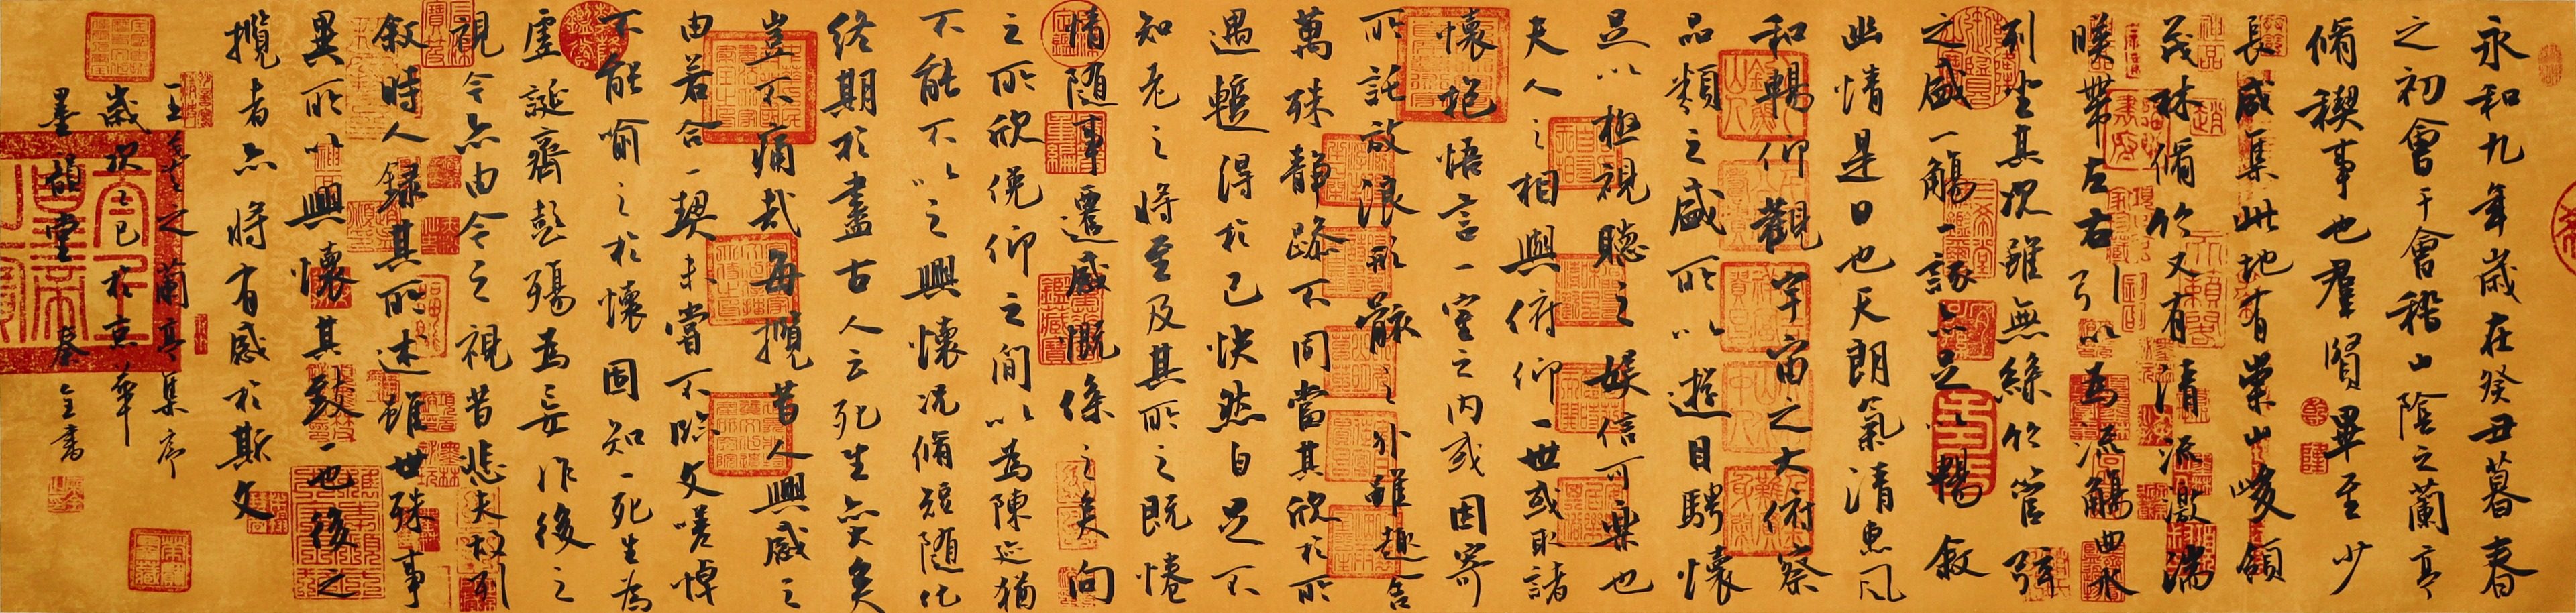 永和九年歲在癸丑暮春
之初會于會稽山陰之蘭亭
脩稧事也羣賢畢至少
長咸集此地有崇山峻領
茂林脩竹又有清流激湍
暎帶左右引以為流觴曲水
列坐其次雖無絲竹管弦
之盛一觴一詠亦足以暢敘
幽情是日也天朗氣清惠風
和暢仰觀宇宙之大俯察
品類之盛所以遊目騁懷
足以極視聽之娛信可樂也
夫人之相與俯仰一世或取諸
懷抱悟言一室之內或因寄
所託放浪形骸之外雖趣舍
萬殊靜躁不同當其欣於所
遇蹔得於己怏然自足不
知老之將至及其所之既惓
情隨事遷感慨係之矣向
之所欣俛仰之間以為陳迹猶
不能不以之興懷況脩短隨化
終期於盡古人云死生亦大矣
豈不痛哉每攬昔人興感之
由若合一契未嘗不臨文嗟悼
不能喻之於懷固知一死生為
虛誕齊彭殤為妄作後之
視今亦由今之視昔悲夫故列
敘時人錄其所述雖世殊事
異所以興懷其致一也後之
攬者亦將有感於斯文
王羲之之蘭亭集序
歲次乙巳於京華
墨堂書